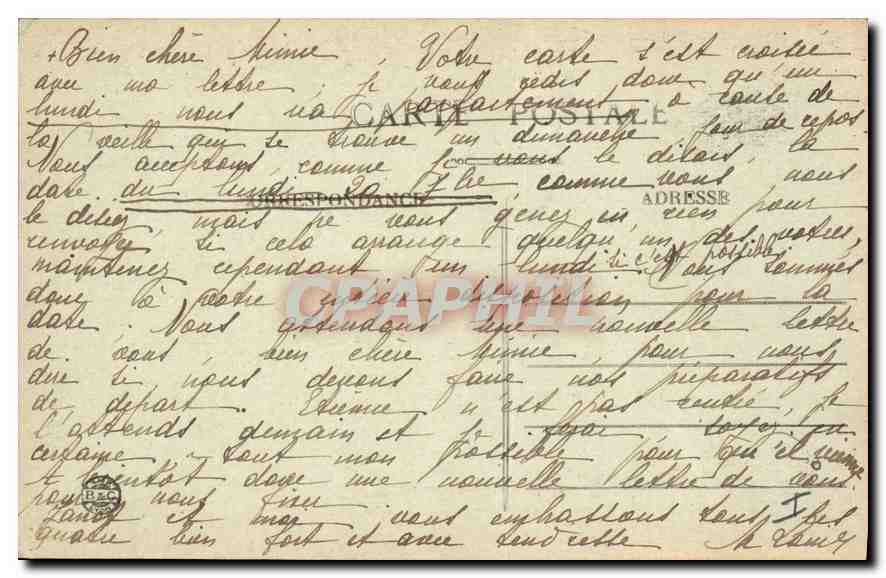 + Bien chère Mimie, Votre carte s'est croisée
avec ma lettre, je vous redis donc qu'un
lundi nous va parfaitement, à cause de
CARTE POSTALE
la veille qui se trouve un dimanche jour de repos
Nous acceptons, comme je vous le disais, la
date du lundi 20 7bre comme vous nous
CORRESPONDANCE
ADRESSE
le disiez, mais ne vous gênez en rien pour
renvoyer si cela arrange quelqu'un des vôtres,
maintenez cependant un lundi si c'est possible. Nous sommes
donc à votre entière disposition pour la
CPAPHIL
date. Nous attendons une nouvelle lettre
de vous, bien chère Mimie pour nous
dire si nous devons faire nos préparatifs
de départ. Etienne n'est pas rentré, je
l'attends demain et je ferai soyez en
certaine tout mon possible pour qu'il vienne
A bientôt donc une nouvelle lettre de vous
pour nous fixer.
B & C
et moi vous embrassons tous les
quatre bien fort et avec tendresse
I